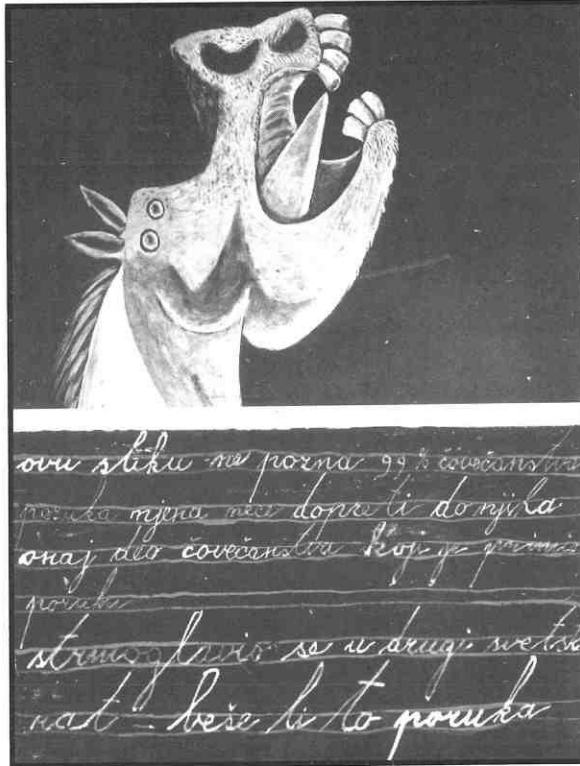 ovu sliku ne pozna 99% čovečanstva
poruka njena neće dopreti do njiha
onaj deo čovečanstva koji je primio
poruku
strmoglavio se u drugi svetski
rat - beše li to poruka